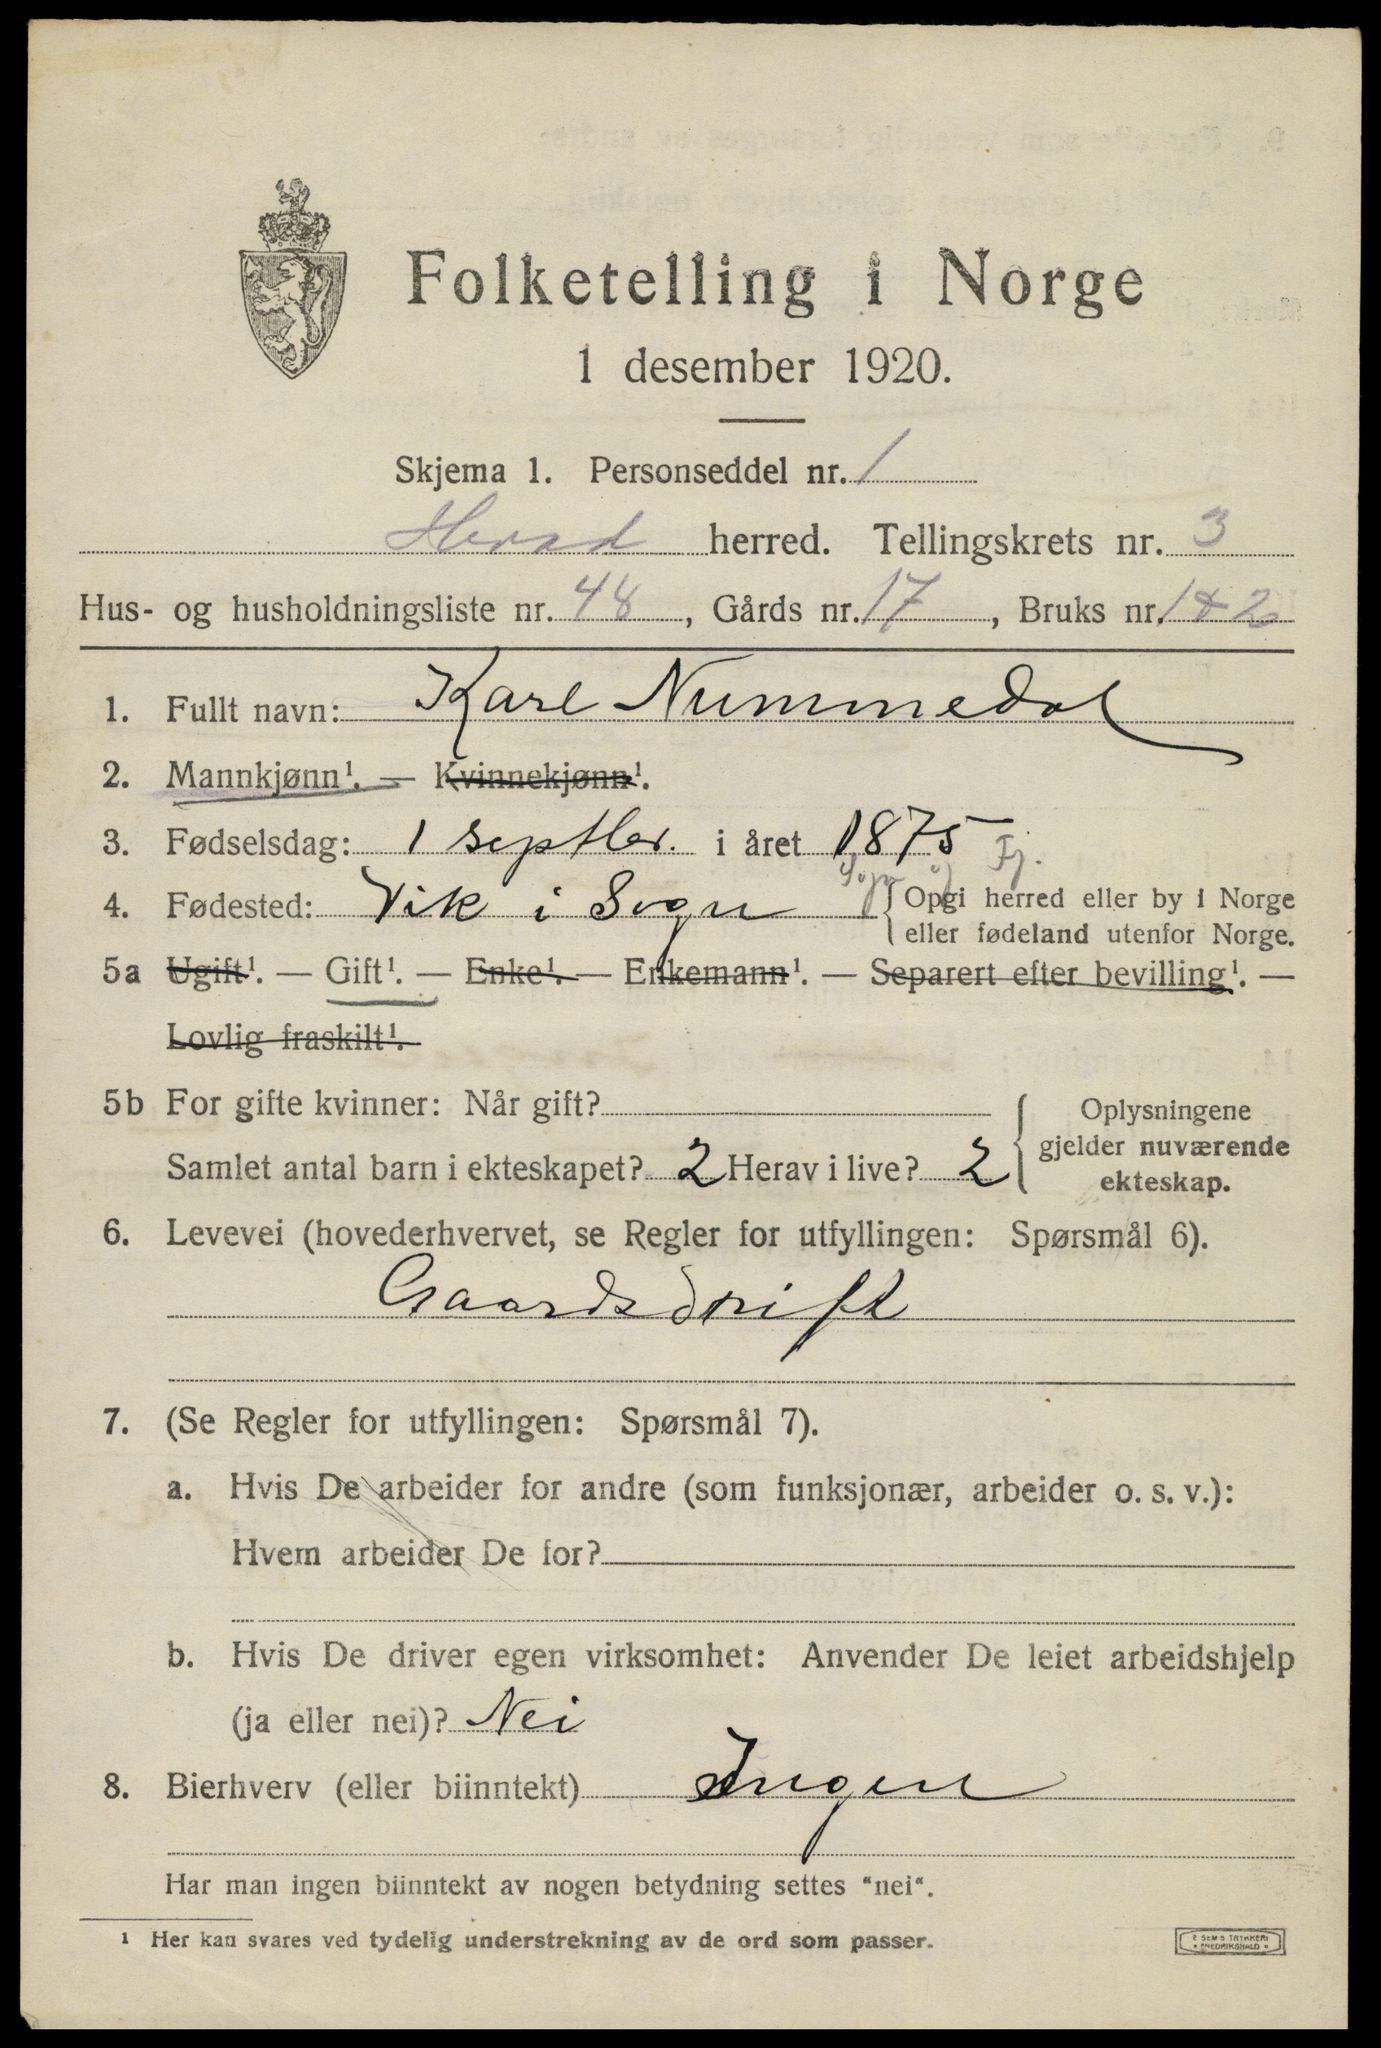 Folketelling i Norge
1 desember 1920.
Skjema 1. Personseddel nr. 1
Herad herred. Tellingskrets nr. 3
Hus- og husholdningsliste nr. 48, Gårds nr. 17, Bruks nr. 1 & 2
1. Fullt navn: Karl Nummedal
2. Mannkjønn¹. — Kvinnekjønn¹.
3. Fødselsdag: 1 septbr. i året 1875
Sogn og Fj.
4. Fødested: Vik i Sogn { Opgi herred eller by i Norge
eller fødeland utenfor Norge.
5a Ugift¹. — Gift¹. — Enke¹. — Enkemann¹. — Separert efter bevilling¹. —
Lovlig fraskilt¹.
5b For gifte kvinner: Når gift?
Samlet antal barn i ekteskapet? 2 Herav i live? 2
{ Oplysningene
gjelder nuværende
ekteskap.
6. Levevei (hovederhvervet, se Regler for utfyllingen: Spørsmål 6).
Gaardsdrift
7. (Se Regler for utfyllingen: Spørsmål 7).
a. Hvis De arbeider for andre (som funksjonær, arbeider o. s. v.):
Hvem arbeider De for?
b. Hvis De driver egen virksomhet: Anvender De leiet arbeidshjelp
(ja eller nei)? Nei
8. Bierhverv (eller biinntekt) Ingen
Har man ingen biinntekt av nogen betydning settes "nei".
¹ Her kan svares ved tydelig understrekning av de ord som passer.
E SEM'S TRYKKERI
FREDRIKSHALD